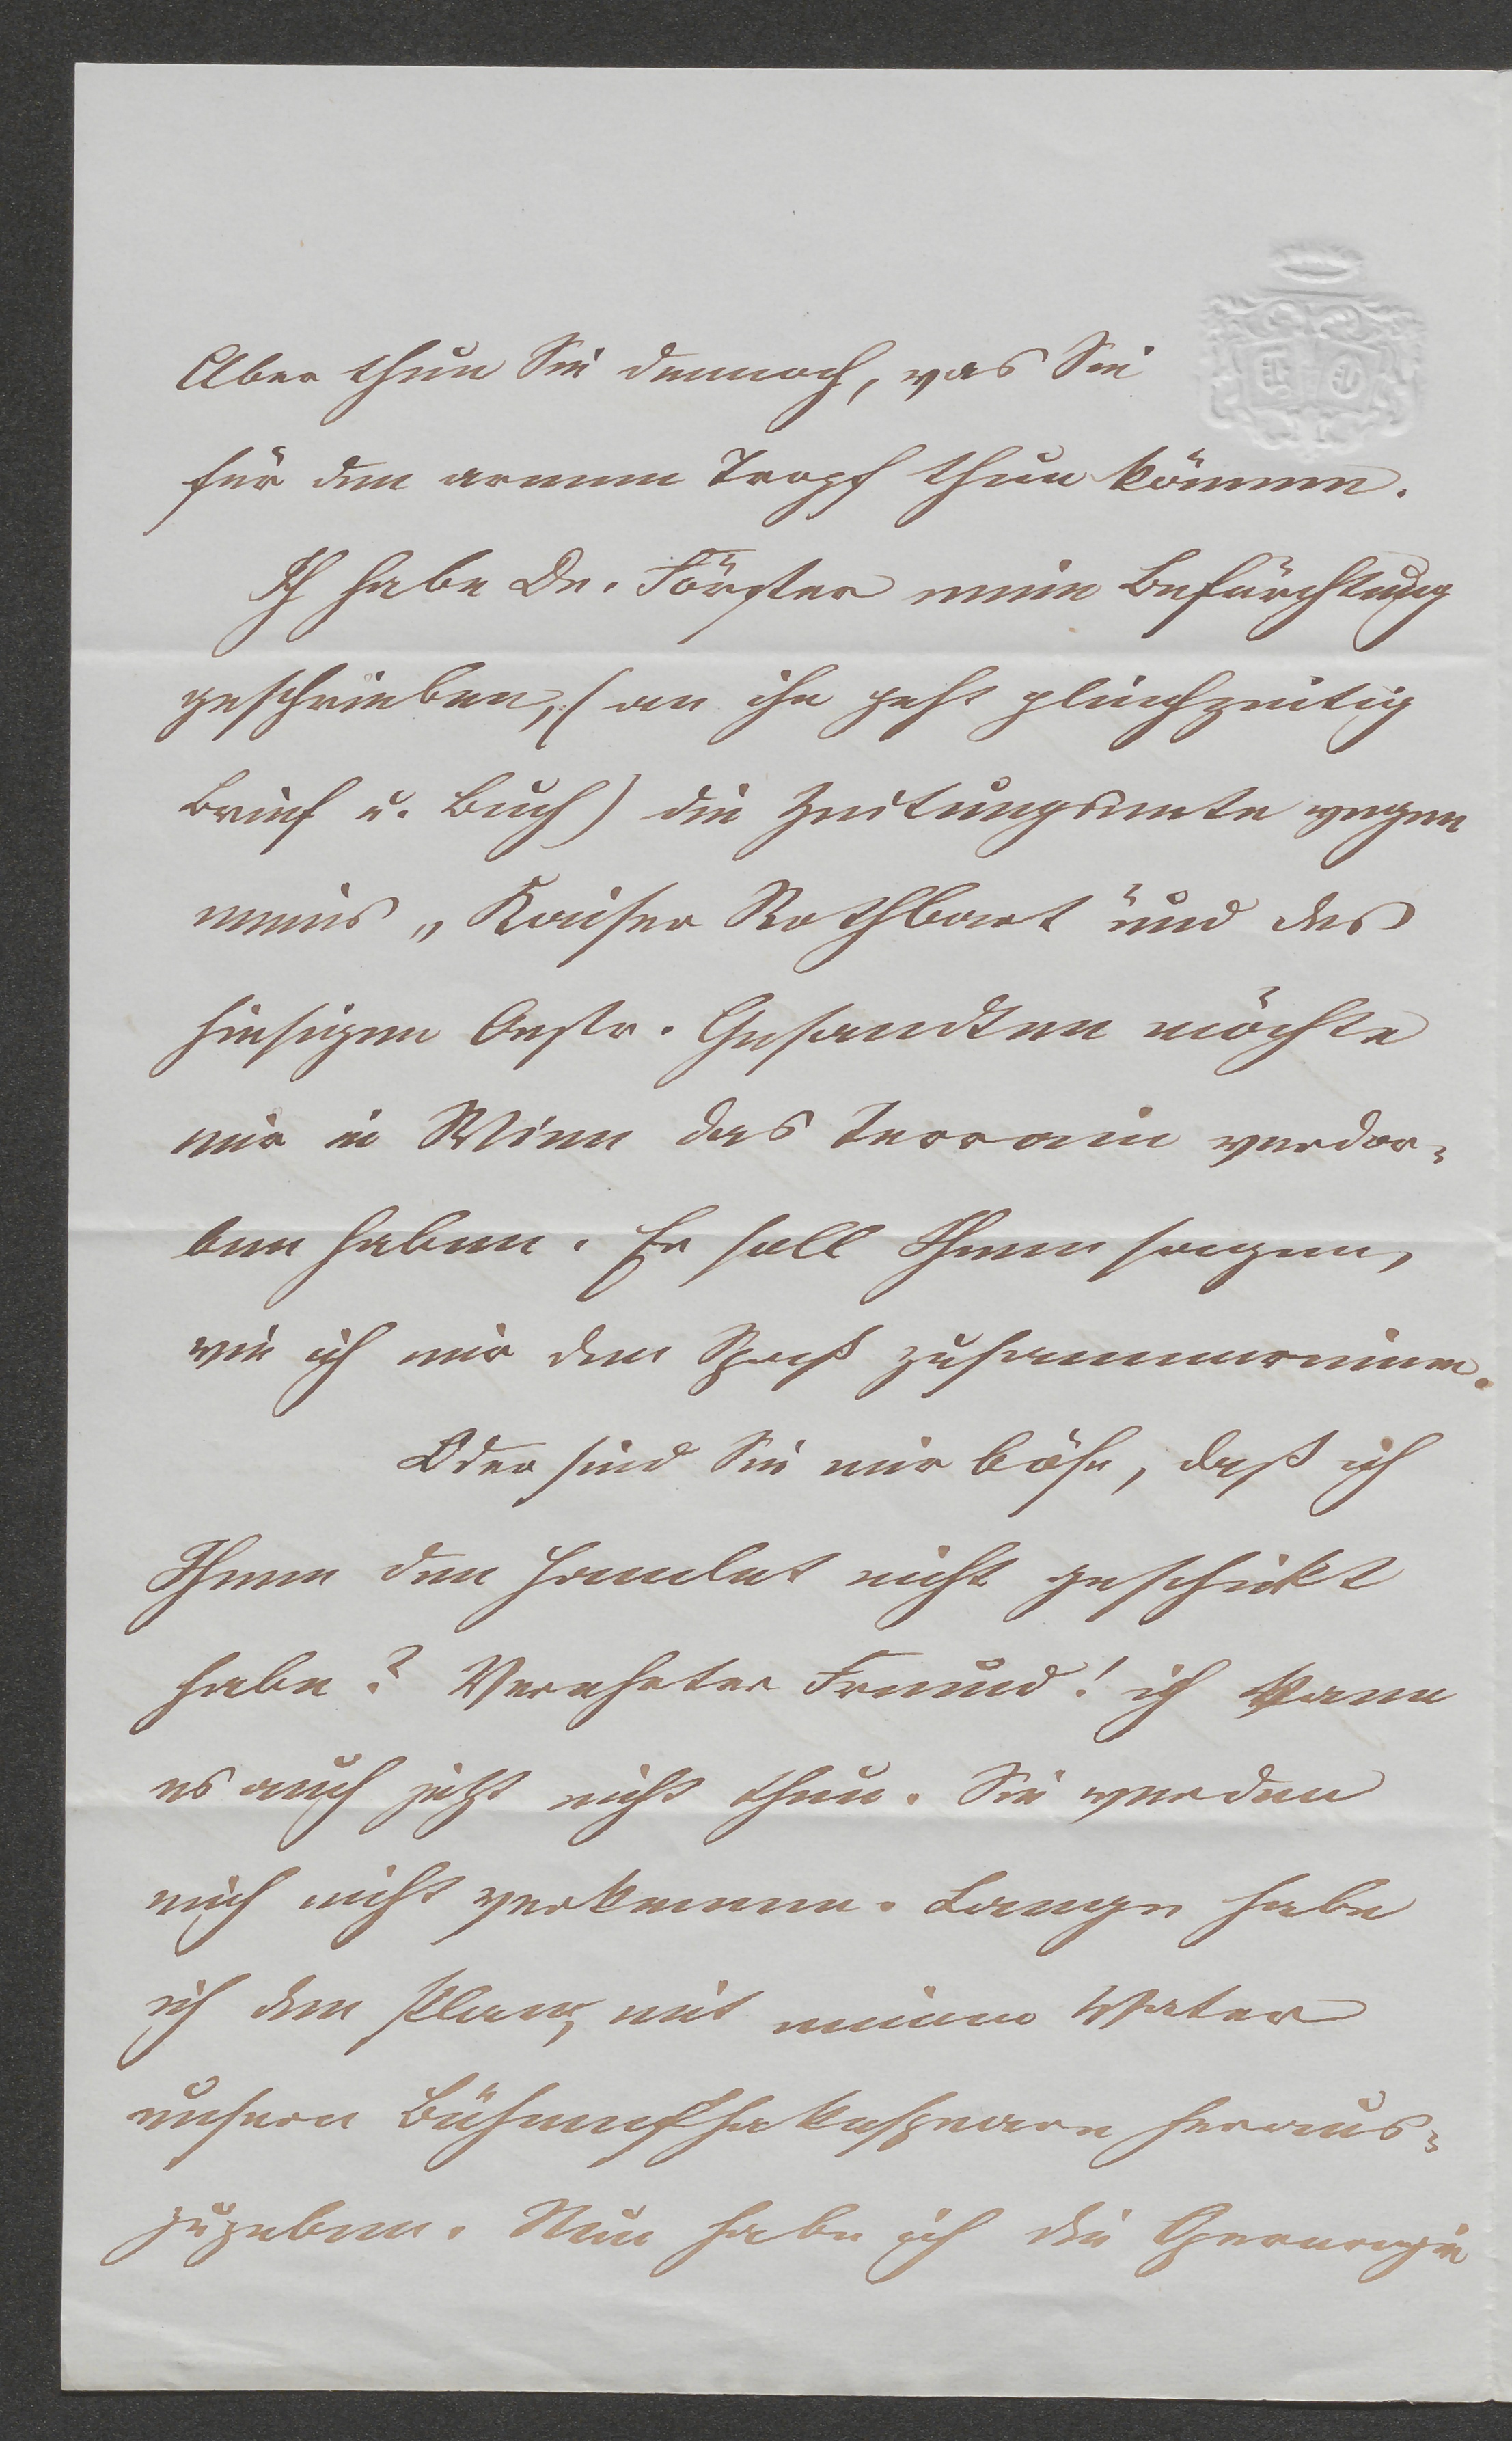 Aber thun Sie dennoch, was Sie
für den armen Tropf thun können.
Ich habe Dr. Förster meine Befürchtung
geschrieben, (an ihn geht gleichzeitig
Brief u. Buch) die Zeitungsente wegen
meines „Kaiser Rothbart" und des
hiesigen Oestr. Gesandten möchte
mir in Wien das Terrain verdor-
ben haben. Er soll Ihnen sagen,
wie ich mir den Spaß zusammenreime.
Oder sind Sie mir böse, daß ich
Ihnen den Hamlet nicht geschickt
habe? Verehrter Freund! ich kann
es auch jetzt nicht thun. Sie werden
mich nicht verkennen. Lange habe
ich den Plan, mit meinem Vater
unsern Bühnenshakespeare heraus-
zugeben. Nun habe ich die